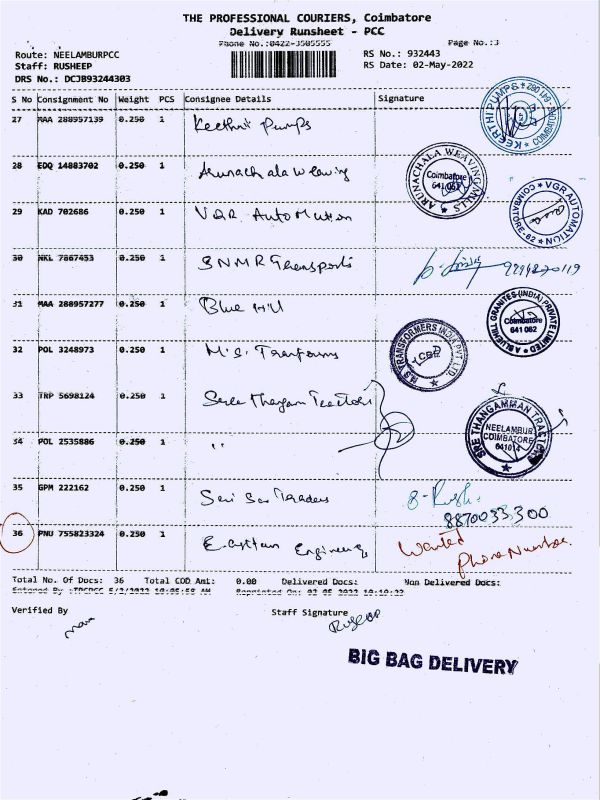 THE PROFESSIONAL COURIERS, Coimbatore
Delivery Runsheet - PCC
Phone No.:0422-3505555
Page No.:3
Route: NEELAMBURPCC
RS No.: 932443
Staff: RUSHEEP
RS Date: 02-May-2022
DRS No.: DCJB93244303
S No Consignment No Weight PCS Consignee Details Signature
27 MAA 288957139 0.250 1 Keethri Pumps
KEERTHI PUMPS COIMBATORE
28 EDQ 14883702 0.250 1 Arunachala Weaving
ARUNACHALA WEAVING MILLS
Coimbatore
641 062
29 KAD 702686 0.250 1 VGR AutoMation
VGR AUTOMATION COIMBATORE-62
30 NKL 7867453 0.250 1 SNMR Transports
31 MAA 288957277 0.250 1 Blue Hill
BLUEHILL GRANITES (INDIA) PRIVATE LIMITED
Coimbatore
641 062
32 POL 3248973 0.250 1 M.S. Tranfoums
M.S TRANSFORMERS INDIA PVT LTD
CBE
33 TRP 5698124 0.250 1 Sree Thangam Tractors
SREE THANGAMMAN TRACTORS
NEELAMBUR
COIMBATORE
641014
34 POL 2535886 0.250 1 "
35 GPM 222162 0.250 1 Sai Sai Traders
8870033300
36 PNU 755823324 0.250 1 Eastern Engineering
Wanted
Phone Number.
Total No. Of Docs: 36 Total COD Amt: 0.00 Delivered Docs: Non Delivered Docs:
Entered By :TPCPCC 5/2/2022 10:05:58 AM Reprinted On: 02-05-2022 10:19:22
Verified By
Staff Signature
BIG BAG DELIVERY